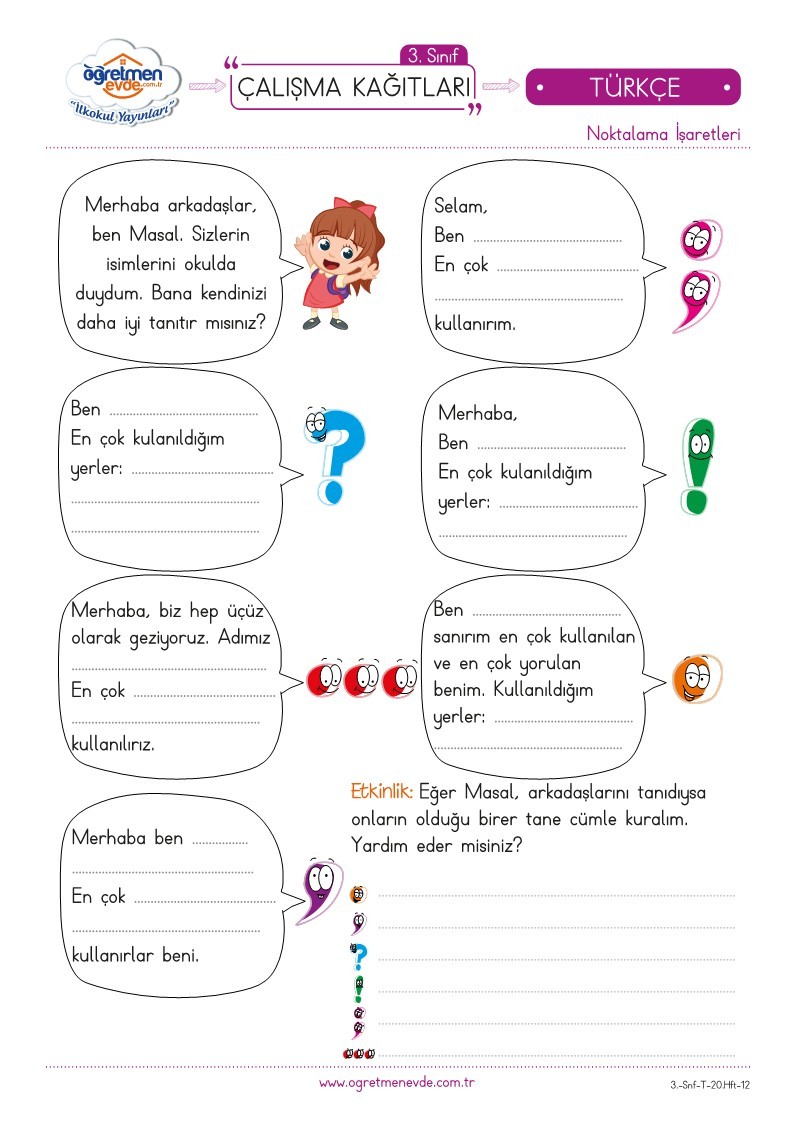 öğretmen
evde.com.tr
"İlkokul Yayınları"
3. Sınıf
“ ÇALIŞMA KAĞITLARI ”
TÜRKÇE
Noktalama İşaretleri
Merhaba arkadaşlar,
ben Masal. Sizlerin
isimlerini okulda
duydum. Bana kendinizi
daha iyi tanıtır mısınız?
Selam,
Ben ........................................
En çok ........................................
........................................
kullanırım.
Ben ........................................
En çok kulanıldığım
yerler: ........................................
........................................
........................................
?
Merhaba,
Ben ........................................
En çok kulanıldığım
yerler: ........................................
........................................
!
Merhaba, biz hep üçüz
olarak geziyoruz. Adımız
........................................
En çok ........................................
........................................
kullanılırız.
Ben ........................................
sanırım en çok kullanılan
ve en çok yorulan
benim. Kullanıldığım
yerler: ........................................
........................................
Merhaba ben ................
........................................
En çok ........................................
........................................
kullanırlar beni.
Etkinlik: Eğer Masal, arkadaşlarını tanıdıysa
onların olduğu birer tane cümle kuralım.
Yardım eder misiniz?
. ........................................
, ........................................
? ........................................
! ........................................
; ........................................
... ........................................
www.ogretmenevde.com.tr
3.-Snf-T-20.Hft-12